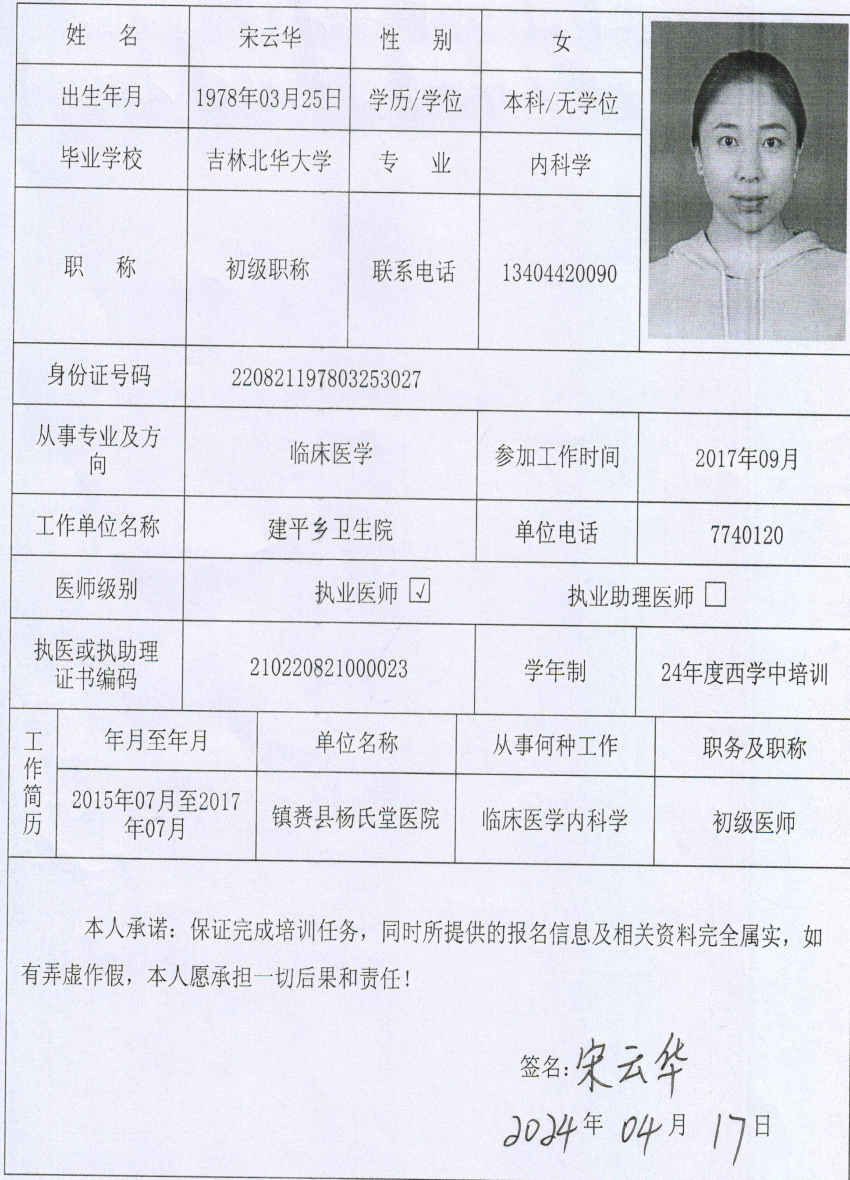 姓 名 宋云华 性 别 女
出生年月 1978年03月25日 学历/学位 本科/无学位
毕业学校 吉林北华大学 专 业 内科学
职 称 初级职称 联系电话 13404420090
身份证号码 220821197803253027
从事专业及方
向 临床医学 参加工作时间 2017年09月
工作单位名称 建平乡卫生院 单位电话 7740120
医师级别 执业医师 ☑ 执业助理医师 □
执医或执助理
证书编码 210220821000023 学年制 24年度西学中培训
工作简历 年月至年月 单位名称 从事何种工作 职务及职称
2015年07月至2017
年07月 镇赉县杨氏堂医院 临床医学内科学 初级医师
本人承诺：保证完成培训任务，同时所提供的报名信息及相关资料完全属实，如
有弄虚作假，本人愿承担一切后果和责任！
签名：宋云华
2024年 04月 17日